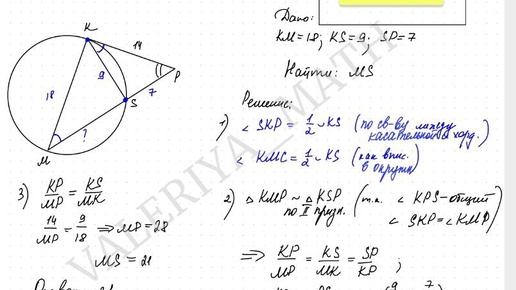 K
14
9
P
18
7
S
?
M
Дано:
KM=18; KS=9; SP=7
Найти: MS
Решение:
1) ∠SKP = 1/2 ∪KS (по св-ву между касательной и хорд.)
∠KMC = 1/2 ∪KS (как впис. в окружн
2) △KMP ~ △KSP (т.к. ∠KPS-общий
по I призн. ∠SKP=∠KMP)
=> KP/MP = KS/MK = SP/KP ;
3) KP/MP = KS/MK
14/MP = 9/18 => MP=28
MS = 21
VALERIYA_MATH